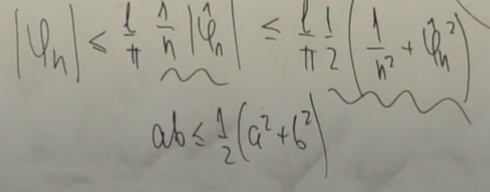 |φₙ| ≤ l/π 1/n |φ̂ₙ| ≤ l/π 1/2 (1/n² + φ̂ₙ²)
ab ≤ 1/2 (a² + b²)